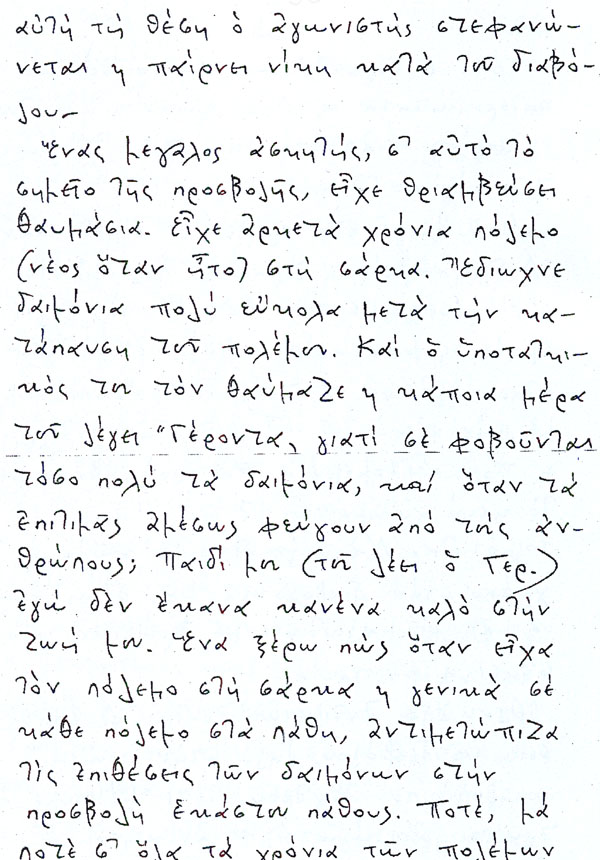 αὐτή τή θέση ὁ ἀγωνιστής στεφανώ-
νεται κ παίρνει νίκη κατὰ τοῦ διαβό-
λου-
Ἕνας μεγάλος ἀσκητής, σ' αὐτὸ τὸ
σημεῖο τῆς προσβολῆς, εἶχε θριαμβεύσει
θαυμάσια. Εἶχε ἀρκετὰ χρόνια πόλεμο
(νέος ὅταν ἦτο) στή σάρκα. Ἔδιωχνε
δαιμόνια πολύ εὔκολα μετὰ τήν κα-
τάπαυση τοῦ πολέμου. Καί ὁ ὑποτακτι-
κός του τὸν θαύμαζε κ κάποια μέρα
τοῦ λέγει "Γέροντα, γιατί σὲ φοβοῦνται
τόσο πολύ τὰ δαιμόνια, καί ὅταν τὰ
ἐπιτιμᾶς ἀμέσως φεύγουν ἀπό τούς ἀν-
θρώπους; Παιδί μου (τοῦ λέει ὁ Γερ.)
ἐγώ δὲν ἔκανα κανένα καλὸ στήν
ζωή μου. Ἕνα ξέρω πώς ὅταν εἶχα
τὸν πόλεμο στή σάρκα κ γενικὰ σὲ
κάθε πόλεμο στὰ πάθη, ἀντιμετώπιζα
τὶς ἐπιθέσεις τῶν δαιμόνων στήν
προσβολή ἑκάστου πάθους. Ποτέ, μά
ποτὲ σ' ὅλα τὰ χρόνια τῶν πολέμων